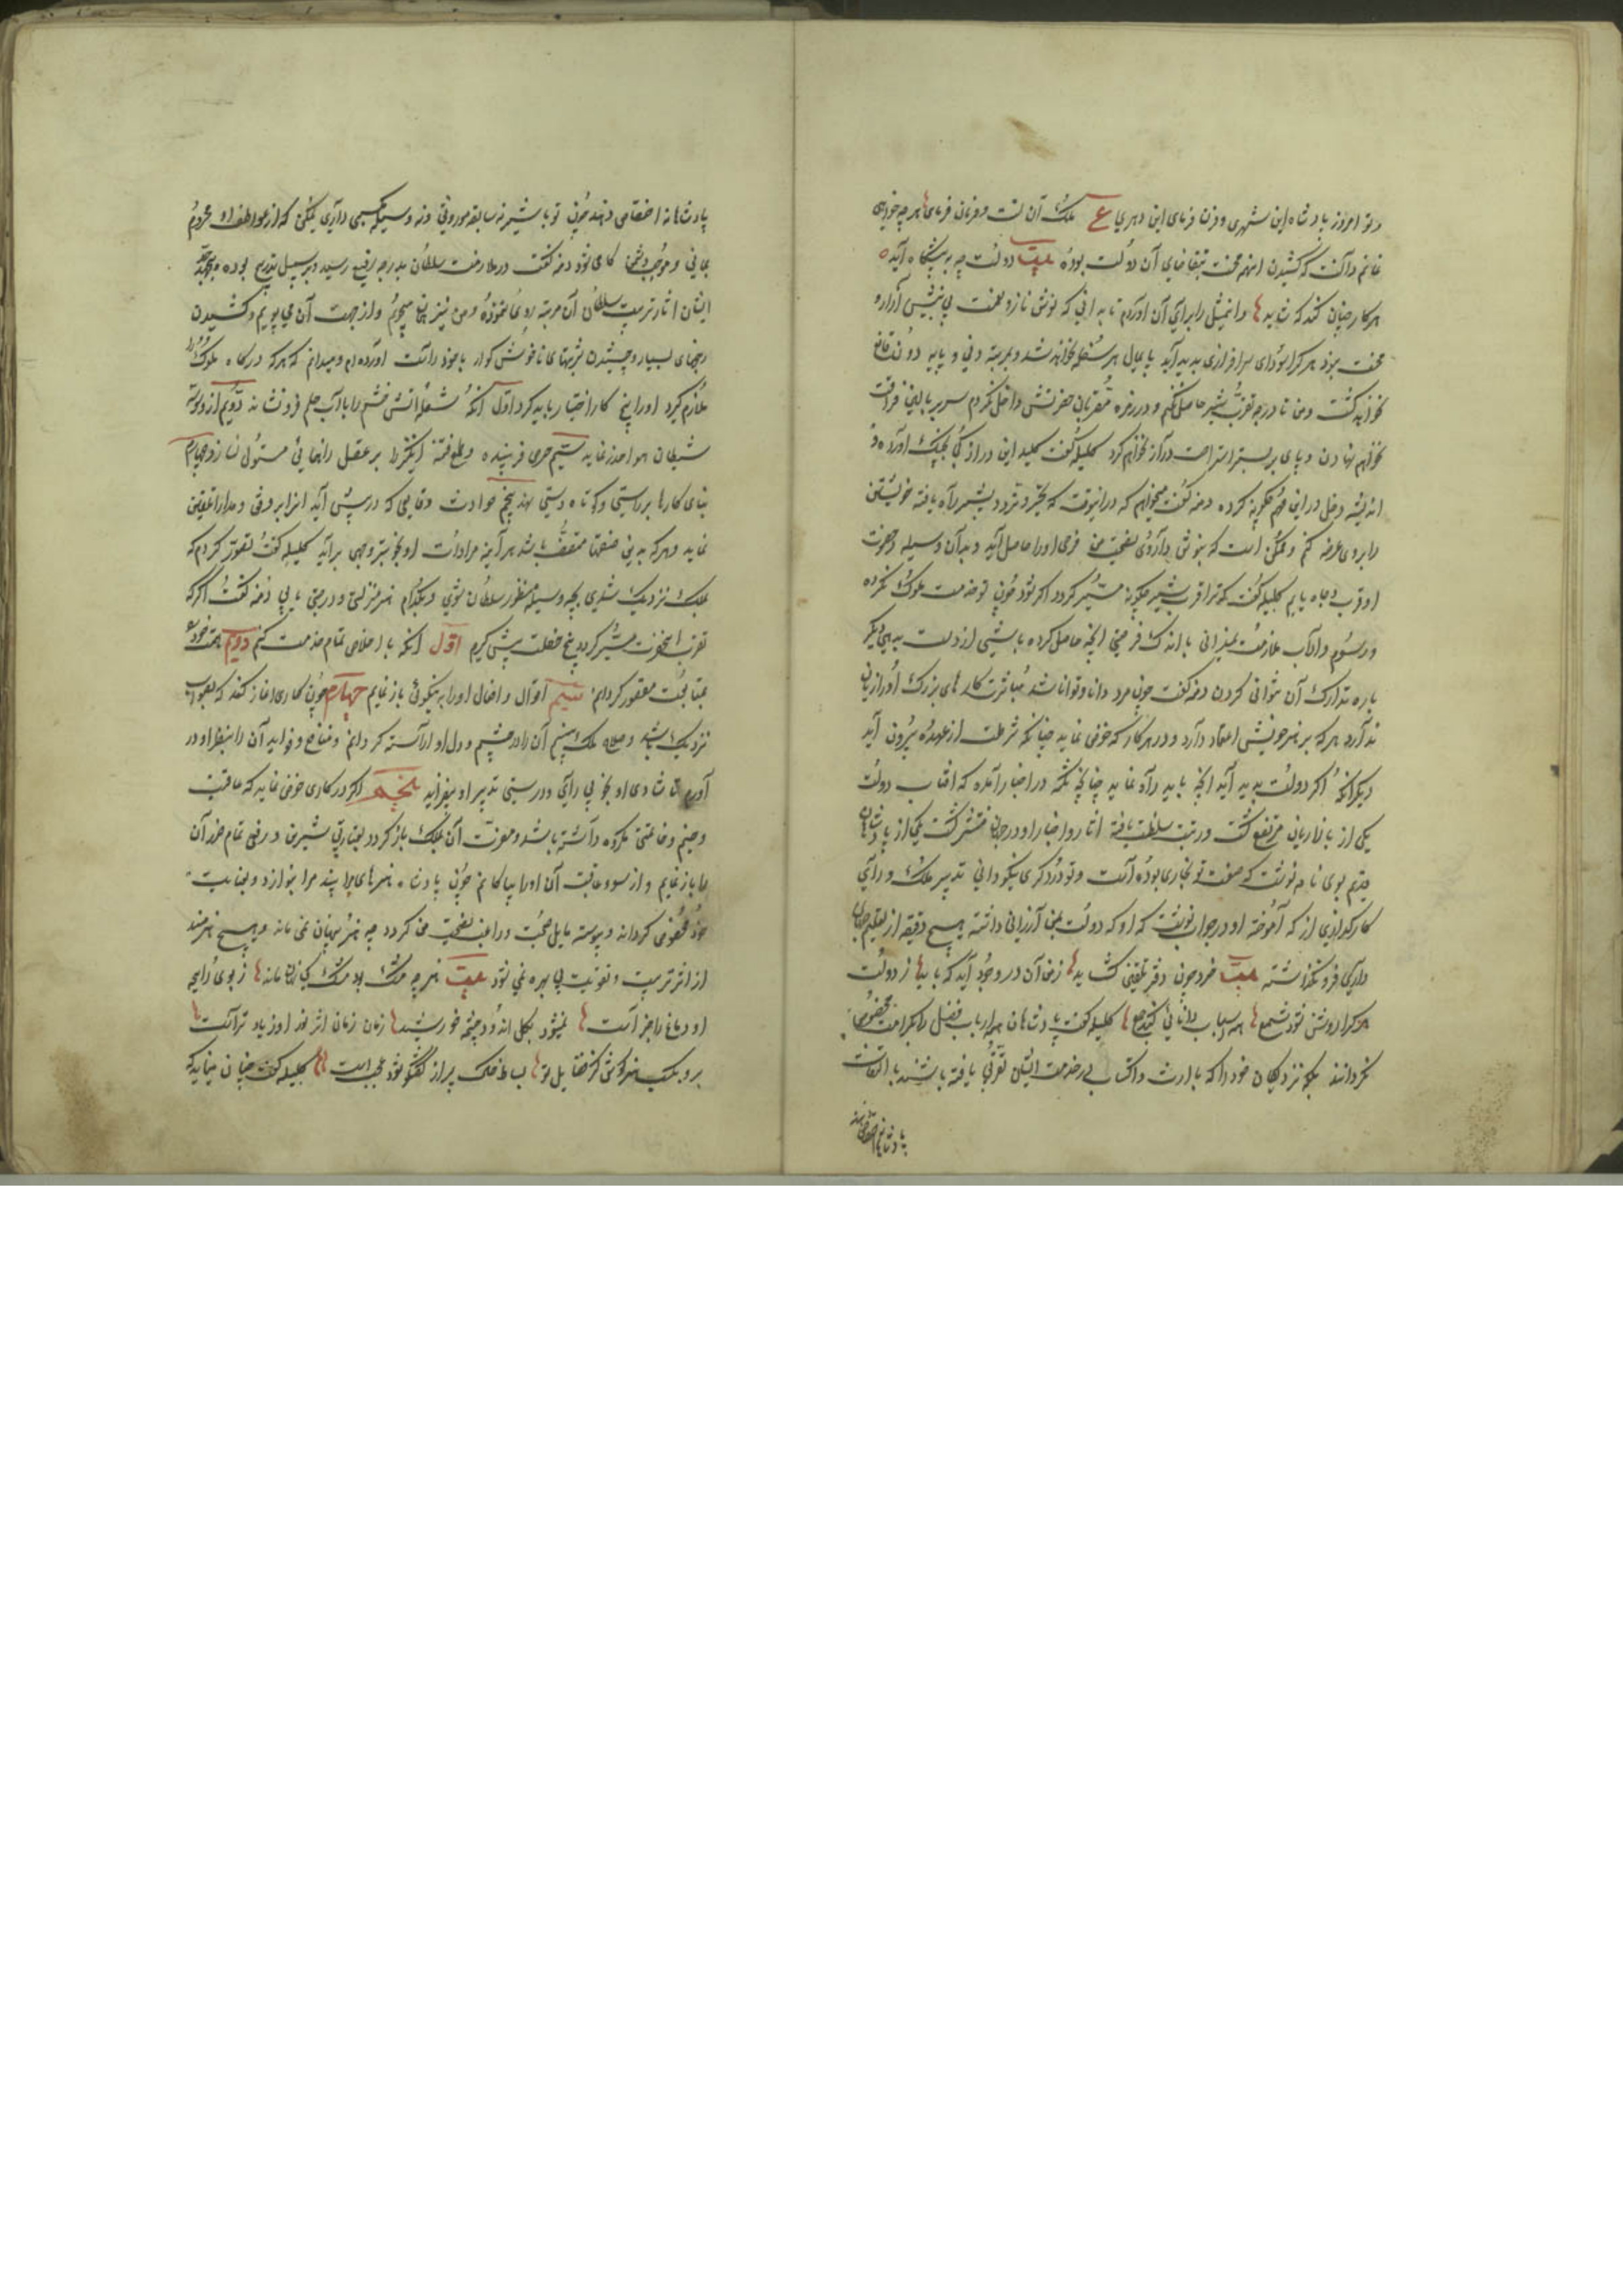 و تو امروز پادشاه این شهری و فرمان فرمای این دهری ع ملک آن تست و فرمان فرمای هرچه خواهی
غانم دانست که کشیدن این همه محنت بتقاضای آن دولت بوده بیت دولت چو به پیشگاه آید
هر کار چنان کند که شاید و این مثل را برای آن آوردم تا بدانی که نوش ناز و نعمت بی نیش آزار و
محنت نبود هر کرا سودای سرافرازی پدید آید پایمال هر سفله نخواهد شد و بمرتبه دنی و پایه دون قانع
نخواهد گشت و من تا درجه تقرب شیر حاصل نکنم و در زمره مقربان حضرتش داخل نگردم سر بر بالین فراغت
نخواهم نهادن و پای بر بستر استراحت دراز نخواهم کرد کلیله گفت کلید این در از کجا بچنک آورده و
اندیشه دخل در این مهم چگونه کرده دمنه گفت میخواهم که در اینوقت که تحیر و تردد بشیر راه یافته خویشتن
را بر وی عرضه کنم و ممکن است که بنوش داروی نصیحت من فرحی او را حاصل آید و بدان وسیله در حضرت
او قرب و جاه یابم کلیله گفت که ترا قرب شیر چگونه میسر گردد اگر بود چون تو خدمت ملوک نکرده
و رسوم و آداب ملازمت نمیدانی باندک فرصتی آنچه حاصل کرده باشی از دست بدهی و دیگر
باره تدارک آن نتوانی کردن دمنه گفت چون مرد دانا و توانا باشد مباشرت کارهای بزرک او را زیان
ندارد هر که بر هنر خویش اعتماد دارد و در هر کار که خوض نماید چنانکه شرطست از عهده بیرون آید
دیگر آنکه اگر دولت پدید آید آنچه باید راه نماید چنانچه در اخبار آمده که آفتاب دولت
یکی از بازاریان مرتفع گشت و رتبت سلطنت یافته آثار و اخبار او در جهان منتشر گشت یکی از پادشاهان
قدیم بوی نامه نوشت که صنعت تو نجاری بوده است و تو درودگری نیکو دانی تدبیر ملک و رای
کارگذاری از که آموخته او در جواب نوشت که او که دولت بمن ارزانی داشته هیچ دقیقه از تعلیم جهان
داری فرو نگذاشته بیت خرد چون دفتر تلقین گشاید ز من آن در وجود آید که باید ز دولت
هر کرا روشن شود شمع همه اسباب دانائی کند جمع کلیله گفت پادشاهان همه ارباب فضل را بکرامت مخصوص
نگردانند بلکه نزدیکان خود را که بارث و اکتساب در خدمت ایشان تقربی یافته باشند بالتفات
پادشاهانه اختصاص دهند
پادشاهانه اختصاص دهند چون تو با شیر نه سابقه موروثی و نه وسیله مکتسبی داری یمکن که از عواطف او محروم
بمانی و موجب دشمن کامی شود دمنه گفت در ملازمت سلطان بدرجه رفیع رسید و بر سبیل تدریج بوده و بی جد و جهد
ایشان و اثر تربیت سلطان آن مرتبه روی ننموده و من نیز همان میجویم و از جهت آن می پویم و کشیدن
رنجهای بسیار و چشیدن شربتهای ناخوش گوار با خود راست آورده ام و میدانم که هر که درگاه ملوک را
ملازم گیرد او را پنج کار اختیار باید کرد اول آنکه شعله آتش خشم را بآب حلم فرونشاند دویم از وسوسه
شیطان هوا حذر نماید سیم حرص فریبنده و طمع فتنه انگیز را بر عقل رهنمای مستولی نسازد چهارم
بنای کارها بر راستی و کوتاه دستی نهد پنجم حوادث و قایعی که در پیش آید آنرا برفق و مدارا تلقی
نماید و هر که بدین صفتها متصف باشد هر آینه مراد او بخوبتر وجهی برآید کلیله گفت تصور کردم که
بملک نزدیک شدی بچه وسیله منظور سلطان شوی و بکدام هنر منزلت و درجتی یابی دمنه گفت اگر که
تقرب آنحضرت میسر گردد پنج خصلت پیش گیرم اول آنکه باخلاص تمام خدمت کنم دویم همت خود را
بر متابعت مقصور گردانم سیم اقوال و افعال او را به نیکوئی باز نمایم چهارم چون کاری آغاز کند که بصواب
نزدیک باشد و صلاح ملک بینم آن را در چشم و دل او آراسته گردانم و منافع و فواید آن را بنظر او در
آورم تا شادی او بخوبی رای و درستی تدبیر او بیفزاید پنجم اگر در کاری خوض نماید که عاقبت
وخیم و خاتمتی مکروه داشته باشد و مضرت آن بملک باز گردد بعبارتی شیرین و رفق تمام ضرر آن
را باز نمایم و از سوء عاقبت آن او را بیاگاهانم چون پادشاه هنرهای مرا بیند مرا بنوازد و بعنایت
خود مخصوص گرداند و پیوسته مایل صحبت و راغب نصیحت من گردد چه هنر پنهان نمی ماند و هیچ هنرمند
از اثر تربیت و تقویت بی بهره نمی شود بیت هنر چو مشک بود مشک کی نهان ماند ز بوی او
شود دماغ با خبر است نمیشود بگل اندوده چشمه خورشید زمان زمان اثر نور او زیادتر است
برو بکسب هنر کوش کز فضایل تو بساط خاک پر از گفتگو شود عجب است کلیله گفت چنان مینماید که